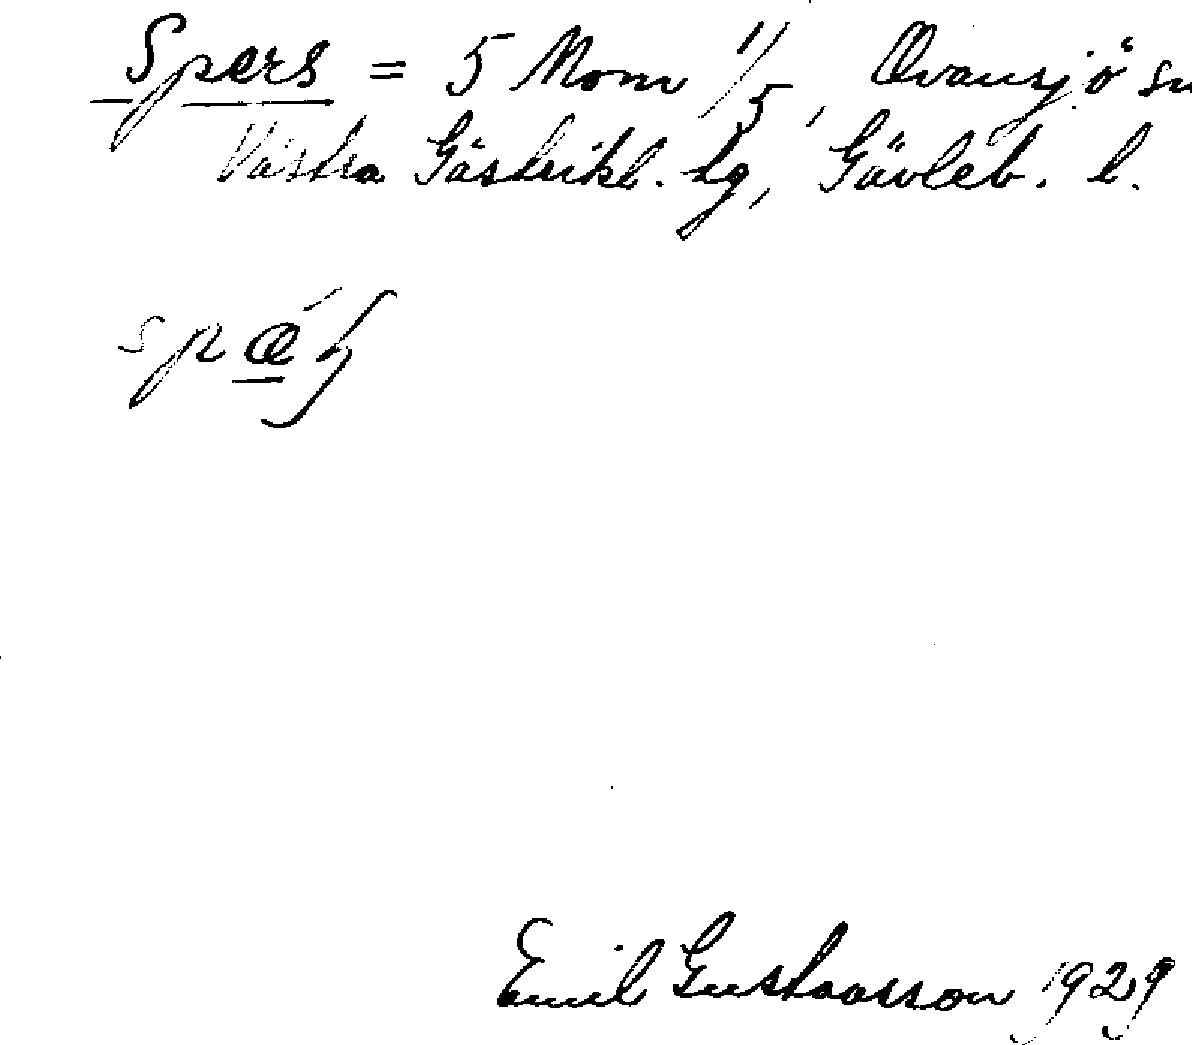 Spers = 5 Mom 1/5, Ovansjö sn
Västra Gästrikl. hg, Gävleb. l.
Emil Gustavsson 1929